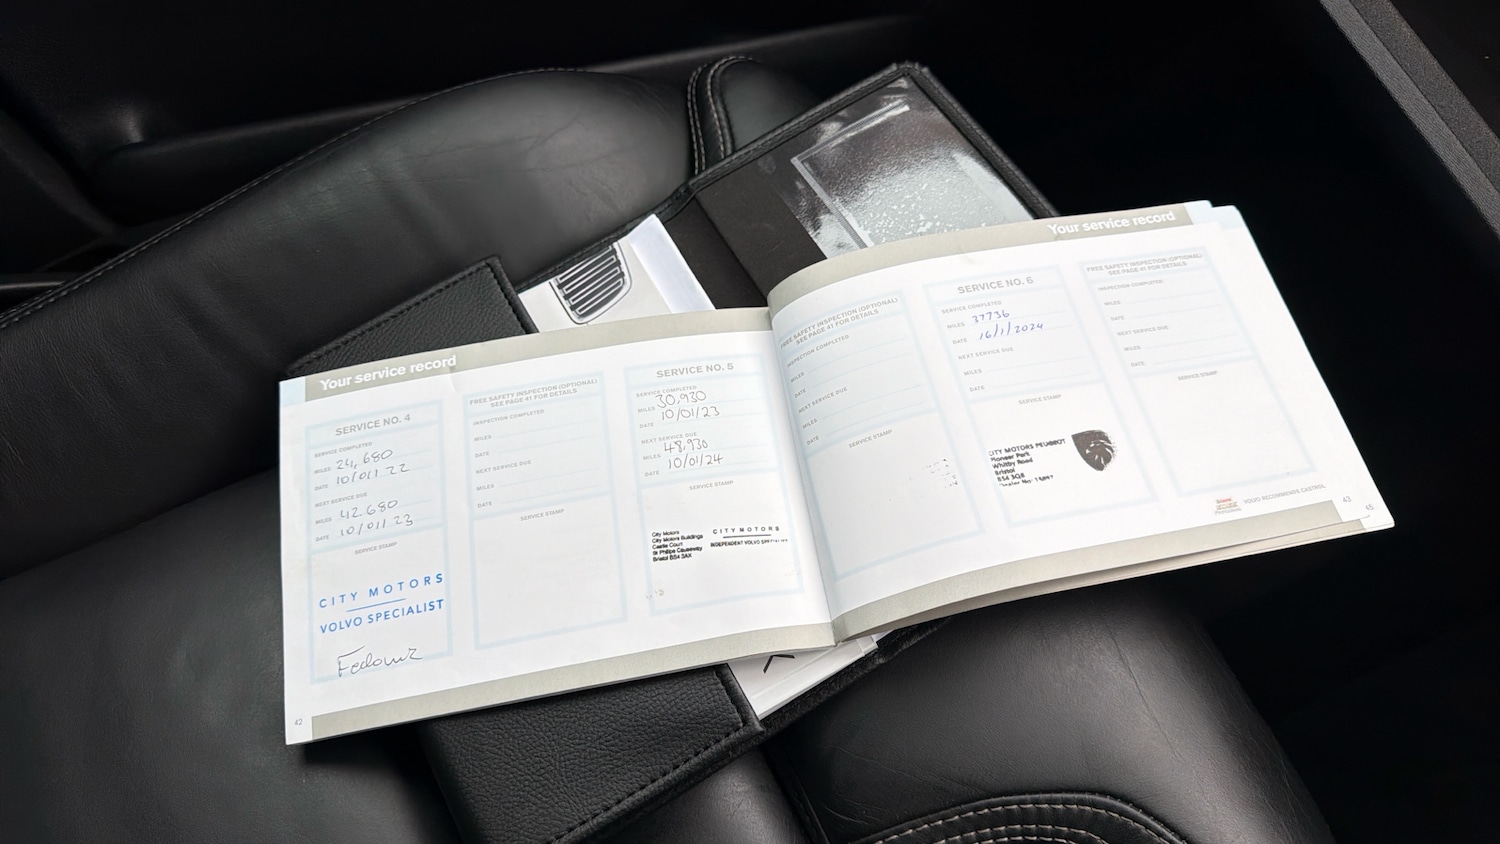 Your service record
SERVICE NO. 4
SERVICE COMPLETED
MILES 24,680
DATE 10/01/22
NEXT SERVICE DUE
MILES 42.680
DATE 10/01/23
SERVICE STAMP
CITY MOTORS
VOLVO SPECIALIST
42
FREE SAFETY INSPECTION (OPTIONAL)
SEE PAGE 41 FOR DETAILS
INSPECTION COMPLETED
MILES
DATE
NEXT SERVICE DUE
MILES
DATE
SERVICE STAMP
SERVICE NO. 5
SERVICE COMPLETED
MILES 30,930
DATE 10/01/23
NEXT SERVICE DUE
MILES 48,930
DATE 10/01/24
SERVICE STAMP
City Motors
City Motors Buildings
Castle Court
St Philips Causeway
Bristol BS4 3AX
CITY MOTORS
INDEPENDENT VOLVO
Your service record
FREE SAFETY INSPECTION (OPTIONAL)
SEE PAGE 41 FOR DETAILS
INSPECTION COMPLETED
MILES
DATE
NEXT SERVICE DUE
MILES
DATE
SERVICE STAMP
SERVICE NO. 6
SERVICE COMPLETED
MILES 37736
DATE 16/1/2024
NEXT SERVICE DUE
MILES
DATE
SERVICE STAMP
CITY MOTORS PEUGEOT
Pioneer Park
Whitby Road
Bristol
BS4 3QB
FREE SAFETY INSPECTION (OPTIONAL)
SEE PAGE 41 FOR DETAILS
INSPECTION COMPLETED
MILES
DATE
NEXT SERVICE DUE
MILES
DATE
SERVICE STAMP
VOLVO RECOMMENDS CASTROL
43
45